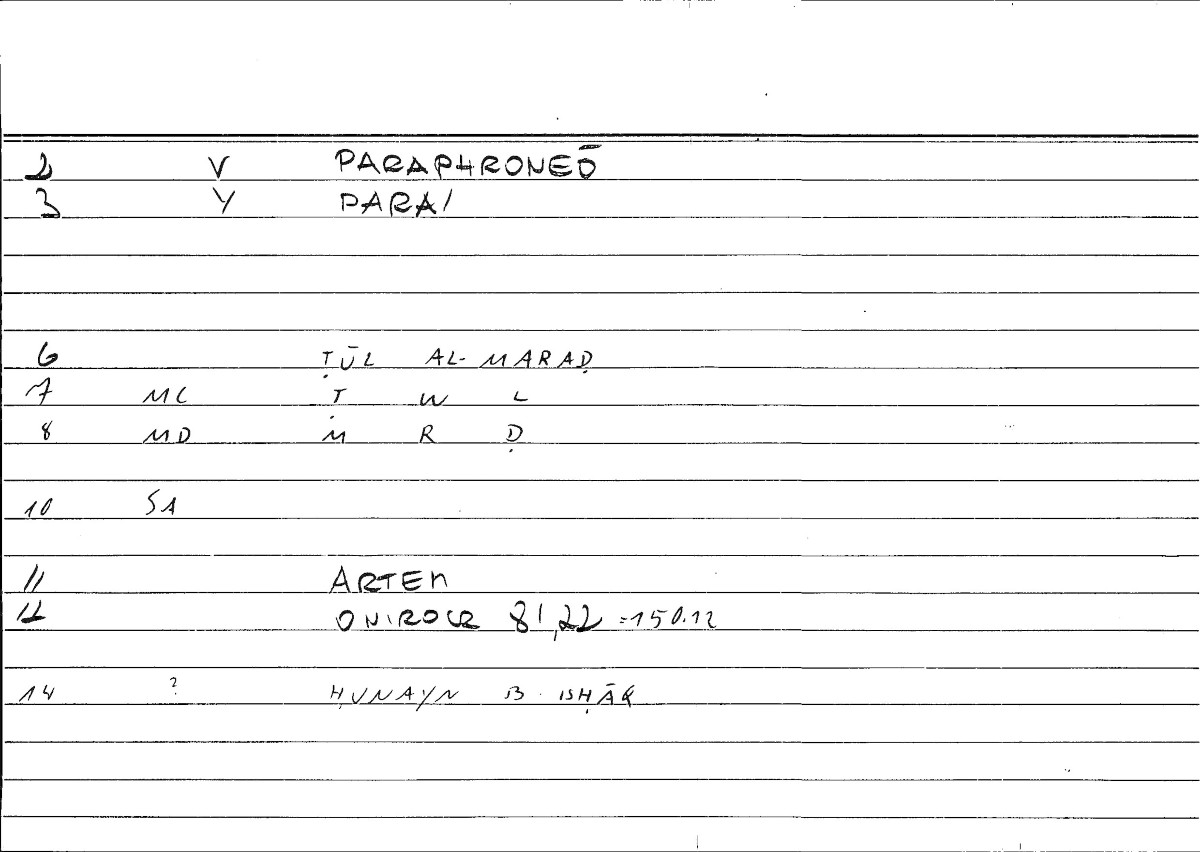 2 V PARAPHRONEŌ
3 Y PARA/
6 ṬŪL AL-MARAḌ
7 MC Ṭ W L
8 MD M R Ḍ
10 SA
11 ARTEM
12 ONIROCR 81,22 =150.12
14 ? ḤUNAYN B. ISḤĀQ